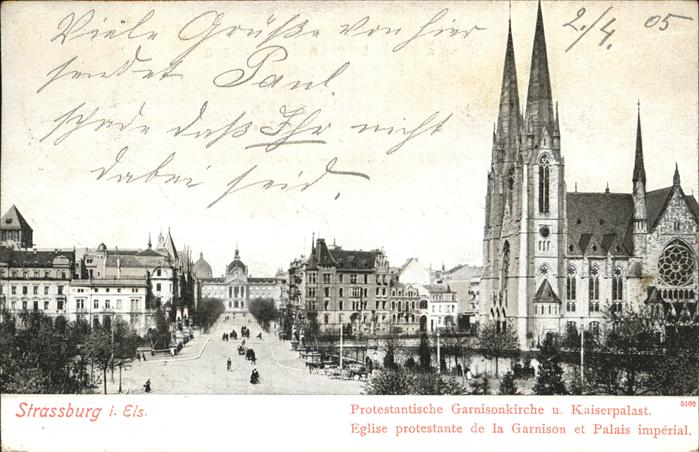 Viele Grüße von hier
2./4. 05
sendet Paul.
schade daß Ihr nicht
dabei seid.
5102
Strassburg i. Els.
Protestantische Garnisonkirche u. Kaiserpalast.
Eglise protestante de la Garnison et Palais impérial.